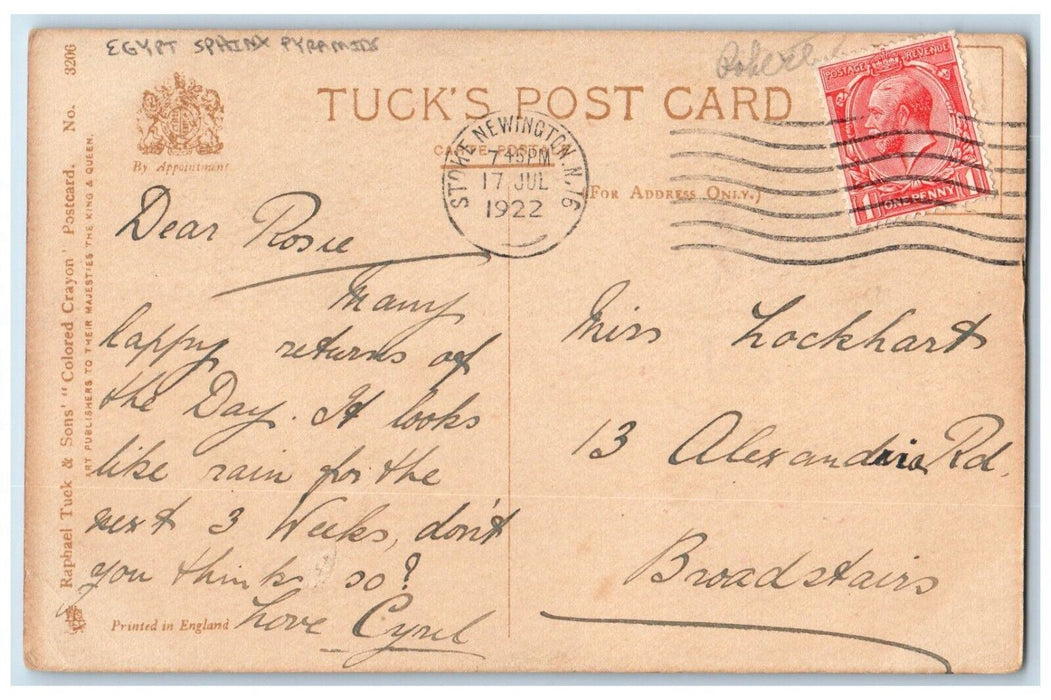 EGYPT SPHINX PYRAMIDS
TUCK'S POST CARD
By Appointment
(FOR ADDRESS ONLY.)
POSTAGE REVENUE
1 ONE PENNY 1
STOKE NEWINGTON. N.16
7 45 PM
17 JUL
1922
Raphael Tuck & Sons' "Colored Crayon" Postcard. No. 3206
ART PUBLISHERS TO THEIR MAJESTIES THE KING & QUEEN.
Dear Rosie
Many
happy returns of
the Day. It looks
like rain for the
next 3 Weeks, don't
you think so?
Love Cyril
Printed in England
Miss Lockhart
13 Alexandria Rd.
Broadstairs